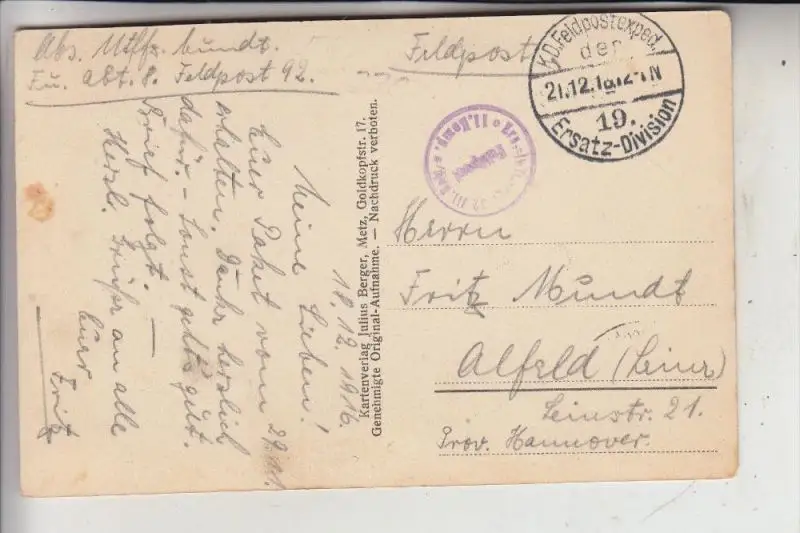 Abs. Utffz. Mundt.
Fu. Abt. 8. Feldpost 92.
Feldpost
K.D. Feldpostexped.
der
21.12.16.12-1N
19.
Ersatz-Division
II. Komp.
18.12.1916.
Meine Lieben!
Euer Paket vom 29.11.
erhalten. Danke herzlich
dafür. – Sonst geht's gut.
Brief folgt. –
Herzl. Grüße an alle
Euer
Fritz
Kartenverlag Julius Berger, Metz, Goldkopfstr. 17.
Genehmigte Original-Aufnahme. — Nachdruck verboten.
Herrn
Fritz Mundt
Alfeld (Leine)
Leinstr. 21.
Prov. Hannover.